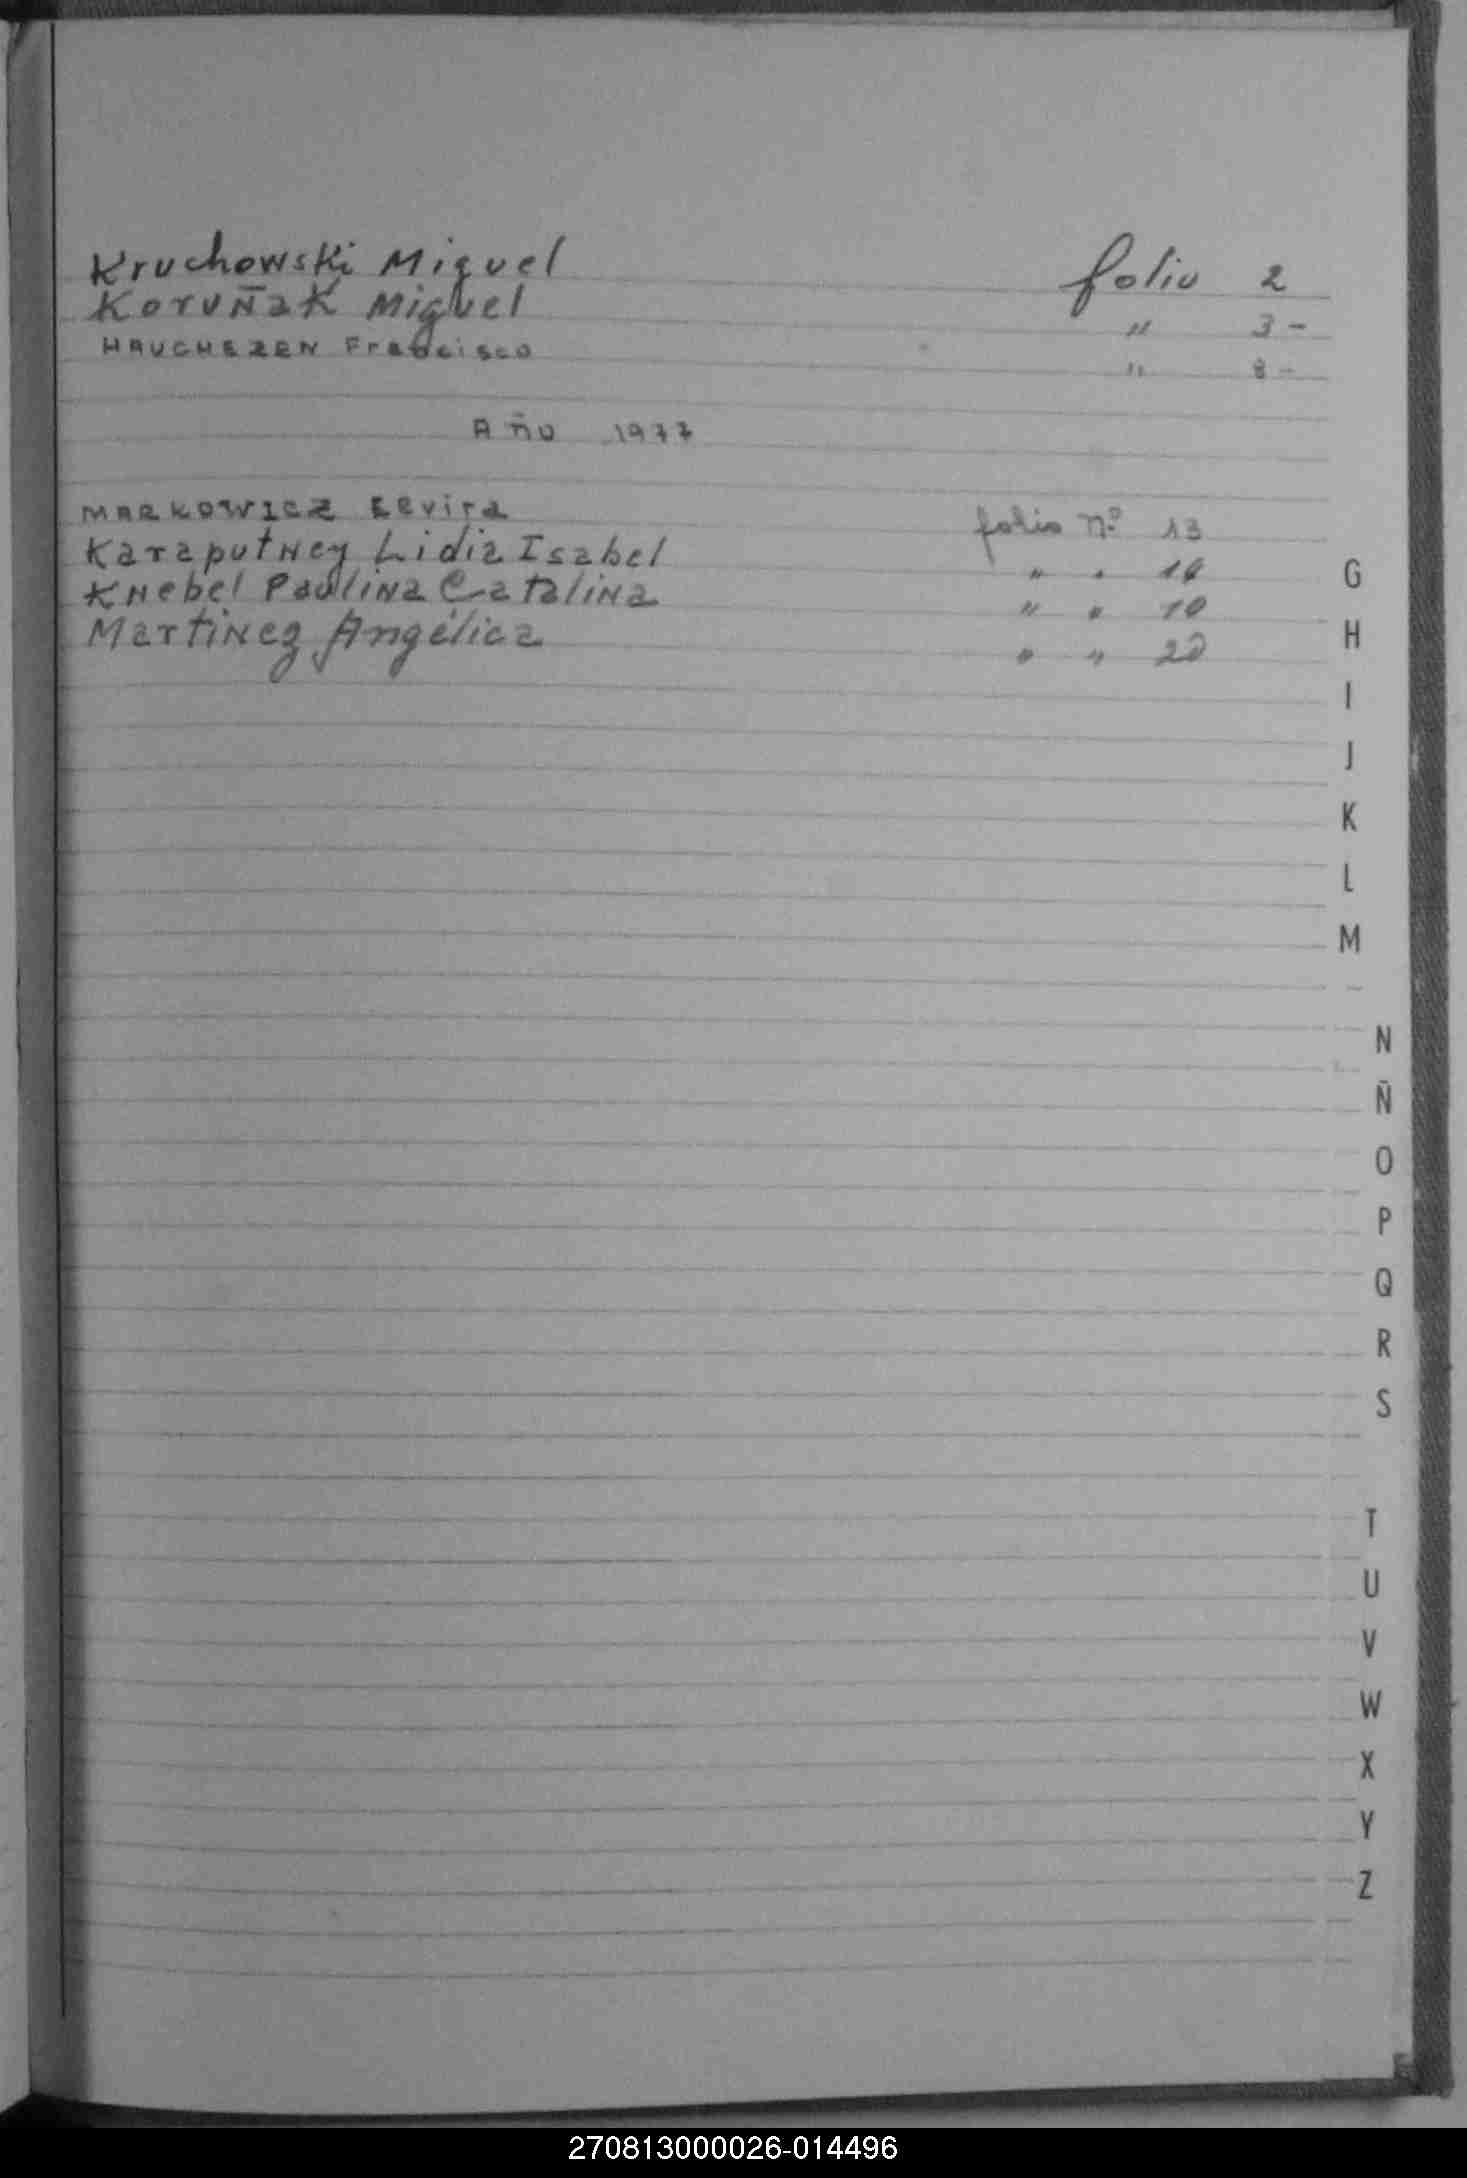 Kruchowski Miguel folio 2
Koruñak Miguel " 3 -
HAUCHEZEN Francisco " 8 -
Año 1977
MARKOWICZ Elvira folio nº 13
Karaputney Lidia Isabel " " 14
Knebel Paulina Catalina " " 10
Martinez Angélica " " 20
G
H
I
J
K
L
M
N
Ñ
O
P
Q
R
S
T
U
V
W
X
Y
Z
270813000026-014496